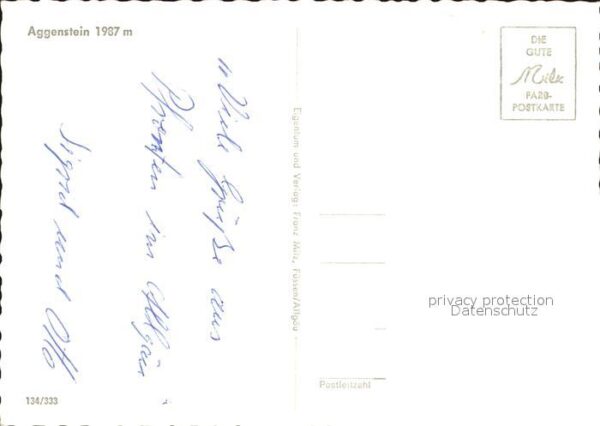 Aggenstein 1987 m
DIE
GUTE
Milz
FARB-
POSTKARTE
"Viele Grüße aus
Pfronten im Allgäu
Sigrid und Otto
Eigentum und Verlag: Franz Milz, Füssen/Allgäu
privacy protection
Datenschutz
Postleitzahl
134/333